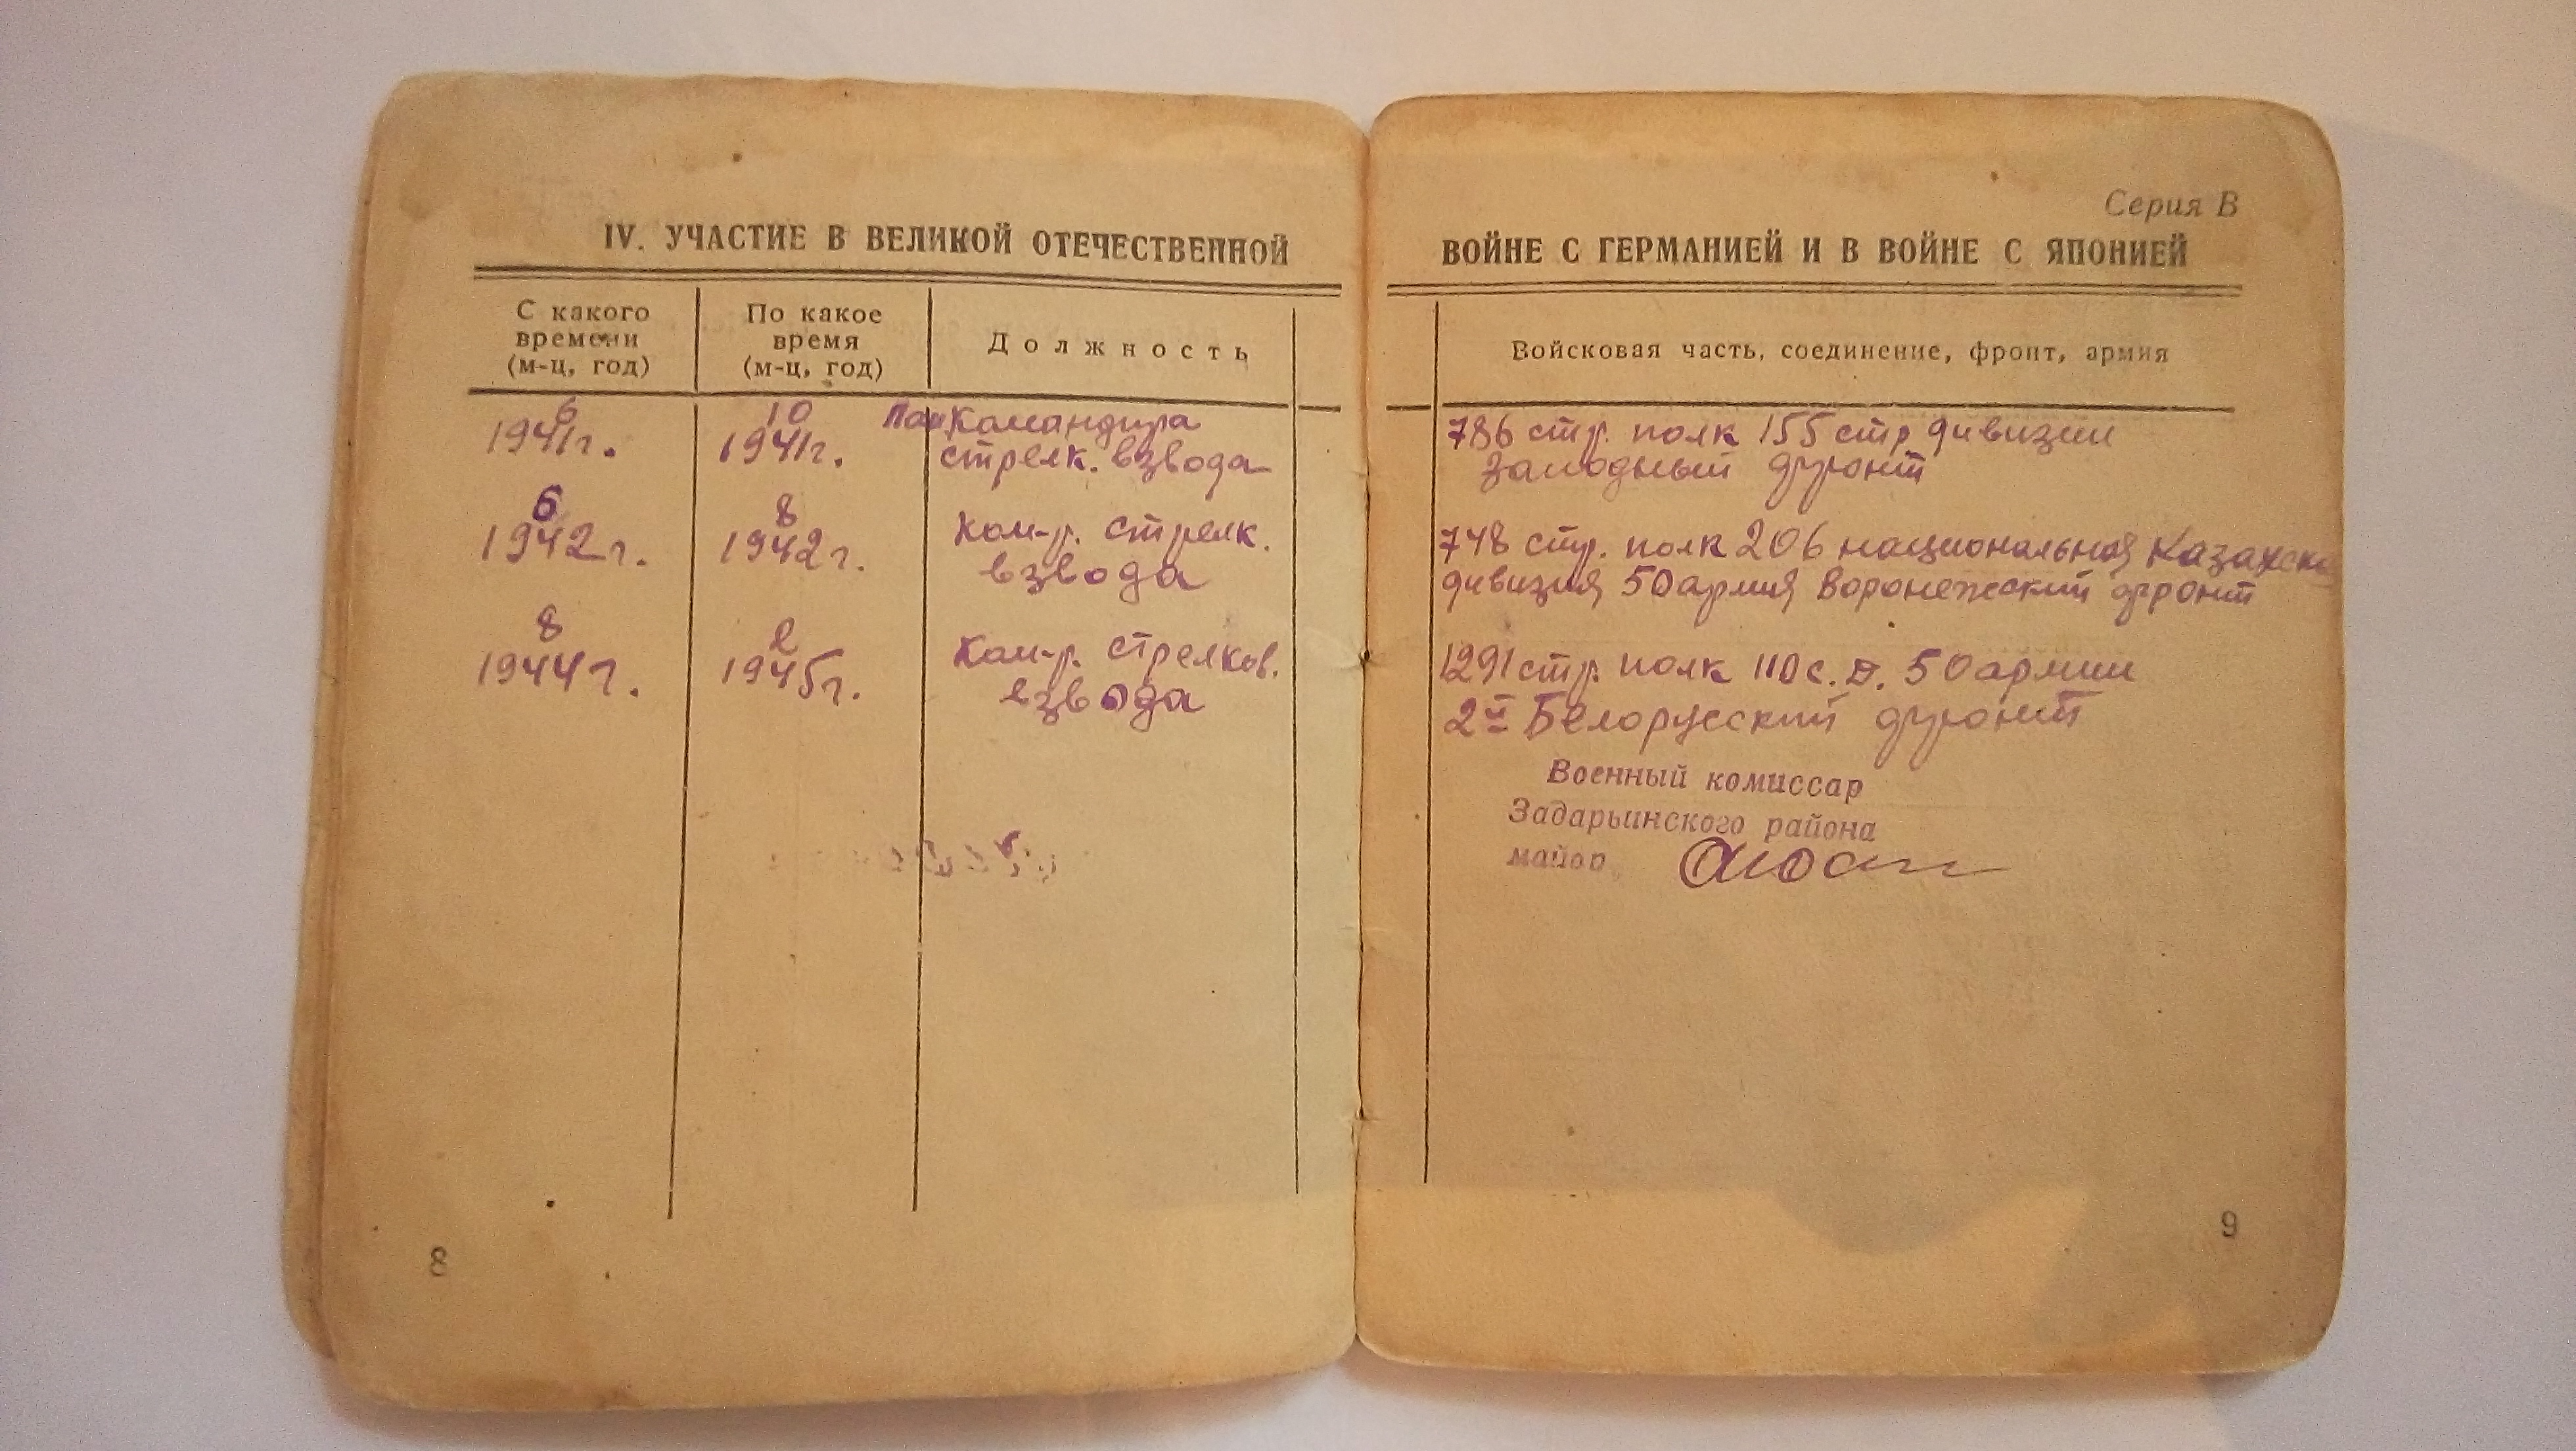 IV. УЧАСТИЕ В ВЕЛИКОЙ ОТЕЧЕСТВЕННОЙ
С какого
времени
(м-ц, год)
По какое
время
(м-ц, год)
Должность
6
1941г.
10
1941г.
Пом Командира
стрелк. взвода
6
1942г.
8
1942г.
Ком-р. стрелк.
взвода
8
1944г.
2
1945г.
Ком-р. стрелков.
взвода
8
Серия В
ВОЙНЕ С ГЕРМАНИЕЙ И В ВОЙНЕ С ЯПОНИЕЙ
Войсковая часть, соединение, фронт, армия
786 стр. полк 155 стр дивизии
Западный фронт
748 стр. полк 206 национальная
дивизия 50 армия Воронежский фронт
1291 стр. полк 110 с. д. 50 армии
2й Белорусский фронт
Военный комиссар
Задарьинского района
майор
9